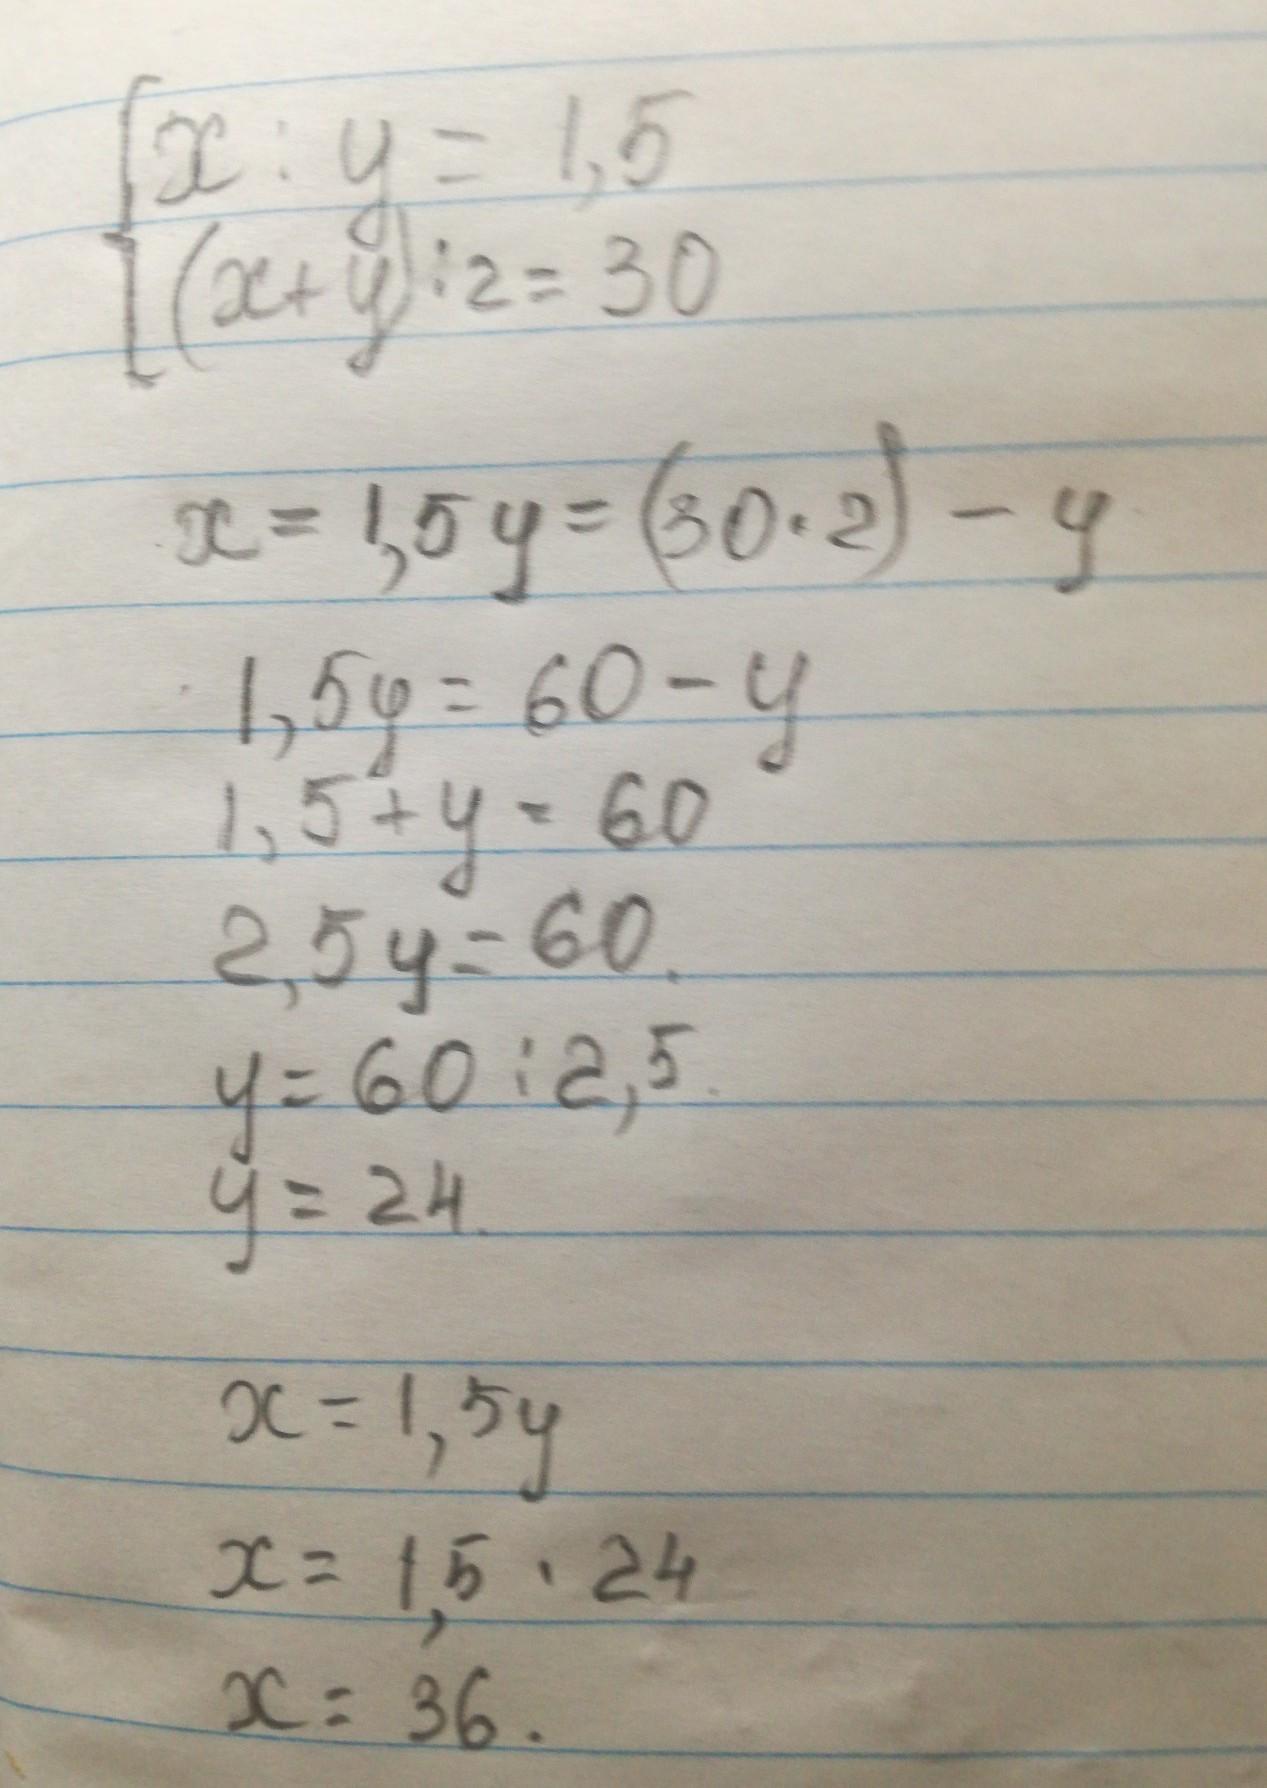 x : y = 1,5
(x+y) : 2 = 30
x = 1,5y = (30·2) - y
1,5y = 60 - y
1,5 + y = 60
2,5y = 60.
y = 60 : 2,5.
y = 24.
x = 1,5y
x = 1,5 · 24
x = 36.